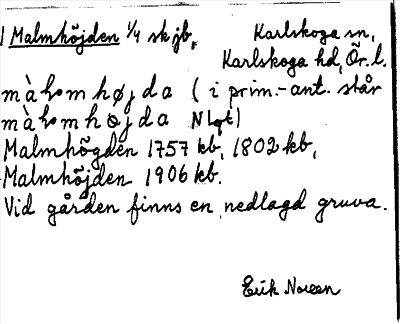 1 Malmhöjden 1/4 sk jb, Karlskoga sn,
Karlskoga hd, Ör. l.
màl̥mhøjda ( i prim.-ant. står
màl̥mhøjda
Malmhögden 1757 kb, 1802 kb,
Malmhöjden 1906 kb.
Vid gården finns en nedlagd gruva.
Erik Noreen